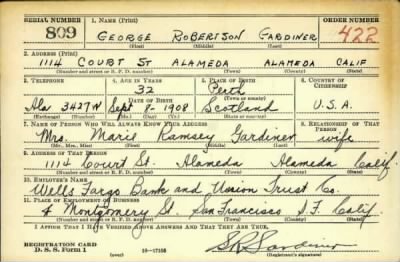 SERIAL NUMBER 1. NAME (Print) ORDER NUMBER
809 GEORGE ROBERTSON GARDINER 422
(First) (Middle) (Last)
2. ADDRESS (Print)
1114 COURT ST ALAMEDA ALAMEDA CALIF
(Number and street or R. F. D. number) (Town) (County) (State)
3. TELEPHONE 4. AGE IN YEARS 5. PLACE OF BIRTH 6. COUNTRY OF CITIZENSHIP
32 Perth
DATE OF BIRTH (Town or county)
Ala 3427W Sept 8- 1908 Scotland U.S.A.
(Exchange) (Number) (Mo.) (Day) (Yr.) (State or country)
7. NAME OF PERSON WHO WILL ALWAYS KNOW YOUR ADDRESS 8. RELATIONSHIP OF THAT PERSON
Mrs. Marie Ramsey Gardiner wife
(Mr., Mrs., Miss) (First) (Middle) (Last)
9. ADDRESS OF THAT PERSON
1114 Court St. Alameda Alameda Calif.
(Number and street or R. F. D. number) (Town) (County) (State)
10. EMPLOYER'S NAME
Wells Fargo Bank and Union Trust Co.
11. PLACE OF EMPLOYMENT OR BUSINESS
4 Montgomery St. San Francisco S.F. Calif.
(Number and street or R. F. D. number) (Town) (County) (State)
I AFFIRM THAT I HAVE VERIFIED ABOVE ANSWERS AND THAT THEY ARE TRUE.
REGISTRATION CARD
D. S. S. Form 1 (over) 16—17105 Gardiner
(Registrant's signature)